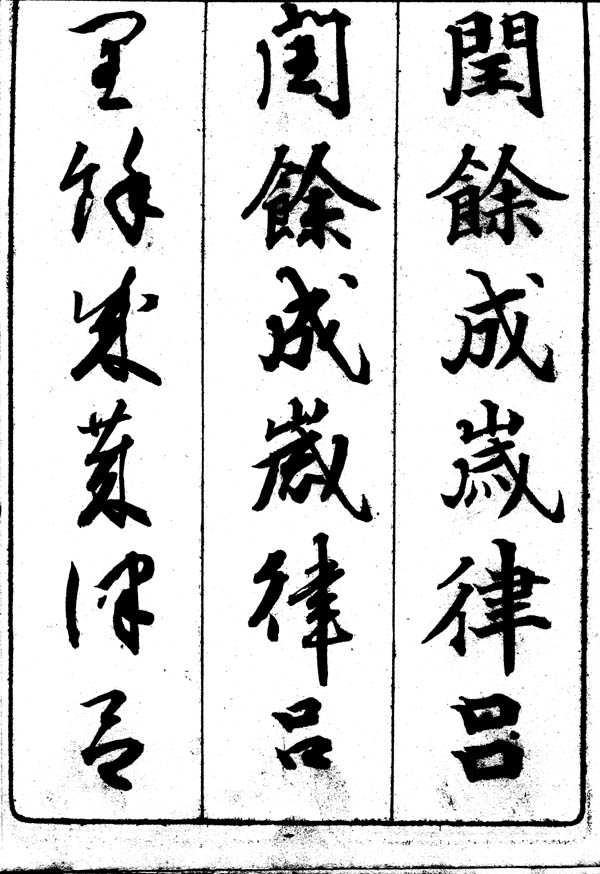 閏餘成歲律吕
閏餘成歲律吕
閏餘成歲律吕